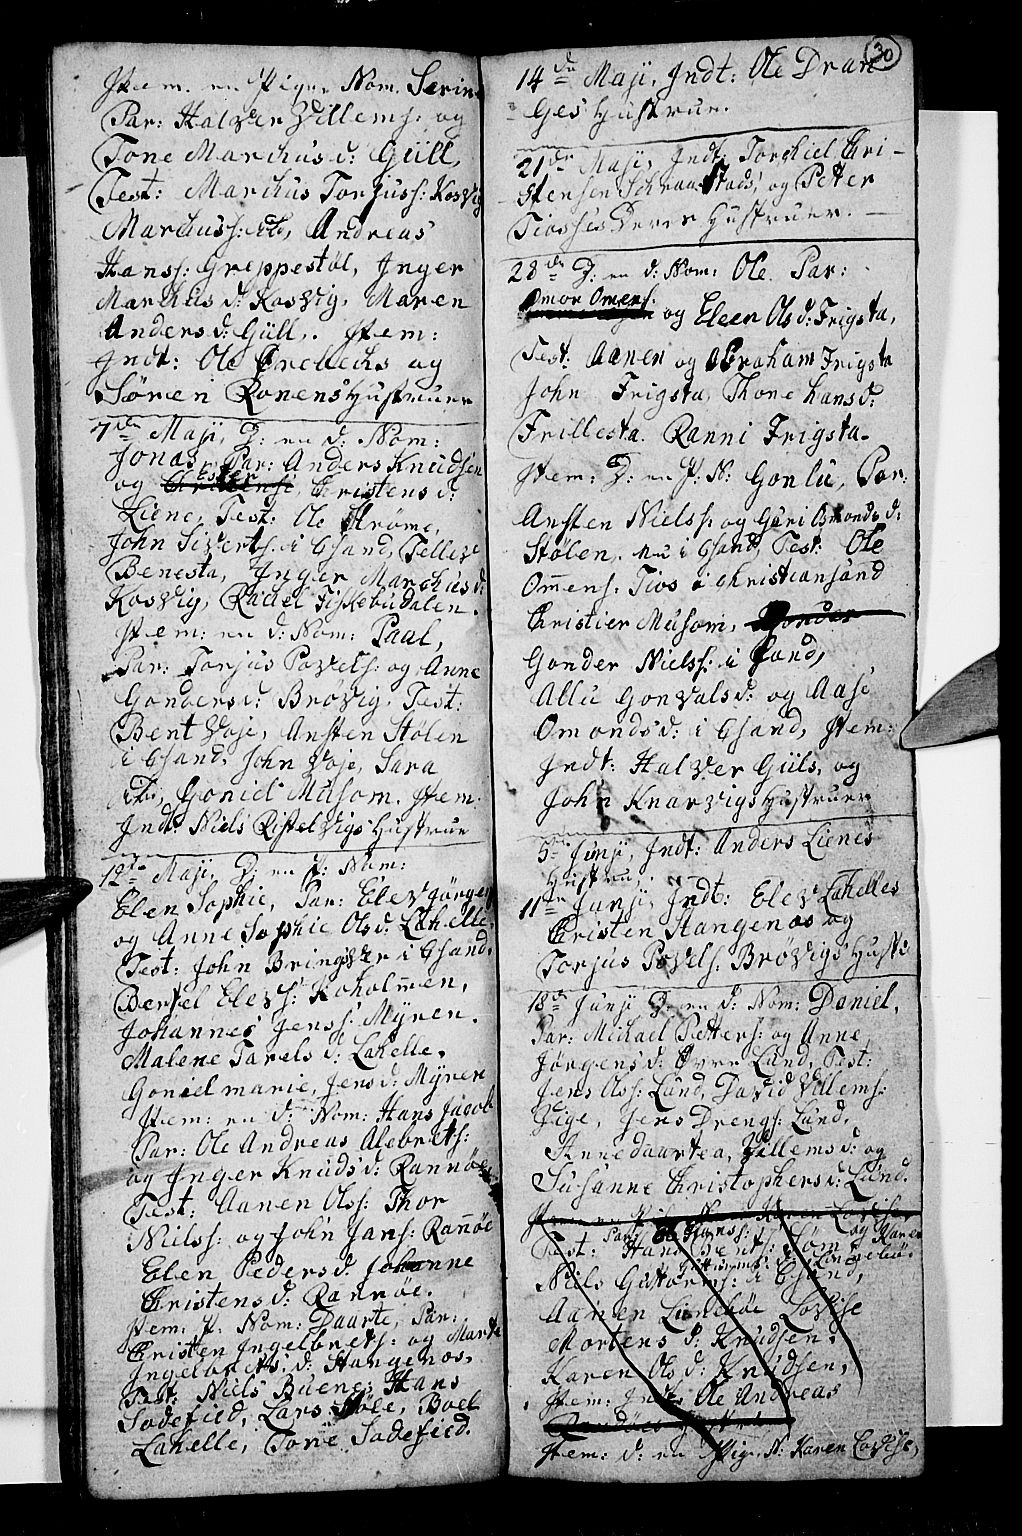 Item. en Pige, Nom. Serine
Par: Halver Villems: og
Tone Marchusd: Güll,
Test: Marchus Torjuss: Kosvig
Marchuss: ib, Andreas
Hanss: Greppestöl, Inger
Marchusd: Kosvig, Maren
Andersd: Güll,. Item:
Indt: Ole Ørebechs og
Sören Rønens Hustruer
7de Maji, D: en d: Nom:
Jonas, Par: Anders Knudsen
og Ester Christensd:
Liene, Test: Ole Strøme,
John Siverts: i Chsand, Tellev
Benesta, Inger Marchusd:
Kosvig, Rachel Fiskebudalen.
Item: en d: Nom: Paal,
Par: Torjus Povels: og Anne
Gondersd: Brovig, Test:
Bent Voje, Ansten Stölen
i Chsand, John Voje, Sara
ib, Goniel Musom. Item.
Ind: Niels Ristelvigs Hustrue
12te Maji, D: en P: Nom:
Elen Sophie, Par: Elev Jörgens
og Anne Sophie Olsd: Lahelle,
Test: John Bringsver i Chsand,
Bertel Elevs: Koholmen,
Johannes Jenss: Myren.
Malene Tarelsd: Lahelle,
Goniel marie, Jensd: Myren
Item: en d: Nom: Hans Jacob
Par: Ole Andreas Alebrets:
og Inger Knudsd: Rannöe
Test: Aanen Olss: Thor
Nilss: og John Jans: Rannöe
Elen Pedersd. Johanne
Christensd: Rannöe.
Item: P: Nom: Daarte, Par:
Christen Ingelbrets: og Marte
Ingelbretsd: Stangenos,
Test: Niels Buene, Hans
Sodefied, Lars Stöle, Boel
Lahelle, Tone Sodefied.
30
14de Maji, Indt: Ole Dran
Ges Hustrue.
21de Maji, Indt: Torchiel Chri-
stensen Schraastads, og Peter
Tiosses Deres Hustruer.
28de D: en d: Nom: Ole. Par:
Omon Omens:
og Eleen Olsd: Frigsta,
Test: Aanen og Abraham Frigsta
John Frigsta, Thone Hansd:
Frillesta. Ranni Frigsta.
Item: D: en P: N: Gonlü, Par:
Ansten Nielss: og Güri Osmondsd:
Stölen, nu i Chsand, Test: Ole
Omens. Tios i Christiansand
Christier Musom,
Gonder Nielss: i Sand,
Allü Gonvalsd: og Aase
Omondsd: i Chsand, Item:
Indt: Halver Güls, og
John Knarvigs Hustruer
5te Junji, Indt: Anders Lienes
Hustrue,
11te Junji, Indt: Elev Lahelles
Christen Stangenos og
Torjus Povels. Brövigs Hustr:
18de Junji D: en d: Nom: Daniel,
Par: Michael Petters: og Anne
Jörgensd: Øvre Lund, Test:
Jens Olss: Lund, David Villems:
Vige, Jens Drengs: Lund,
Annedaartea, Villemsd: og
Susanne Christophersd: Lund.
Test: Hans
Niels Guttorms: i Chsand,
Aanen Lonehöe Lovise
Mortensd: Knudsen,
Karen Olsd: Knudsen,
Item: Indt: Ole Andreas
Item: d: en Pige, N: Karen Lovise,